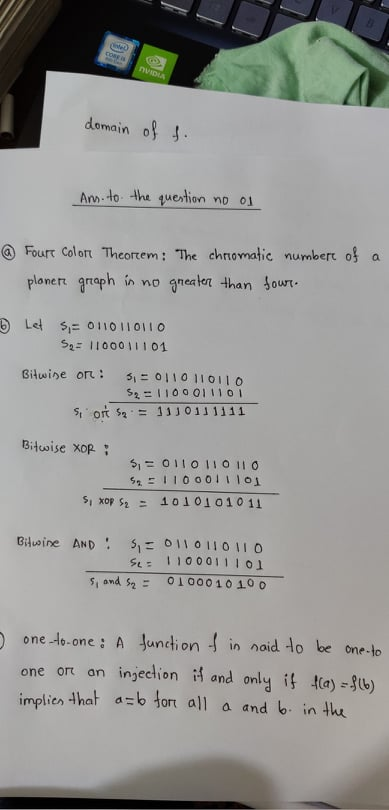 intel
CORE i5
NVIDIA
V
B
domain of f.
Ans. to. the question no 01
ⓐ Four Color Theorem: The chromatic number of a
planer graph is no greater than four.
ⓑ Let S₁ = 0110110110
S₂ = 1100011101
Bitwise or: S₁ = 0110110110
S₂ = 1100011101
S₁ or S₂ = 1110111111
Bitwise XOR:
S₁ = 0110110110
S₂ = 1100011101
S₁ XOR S₂ = 1010101011
Bitwise AND: S₁ = 0110110110
S₂ = 1100011101
S₁ and S₂ = 0100010100
one-to-one: A function f is said to be one-to
one or an injection if and only if f(a) = f(b)
implies that a=b for all a and b. in the